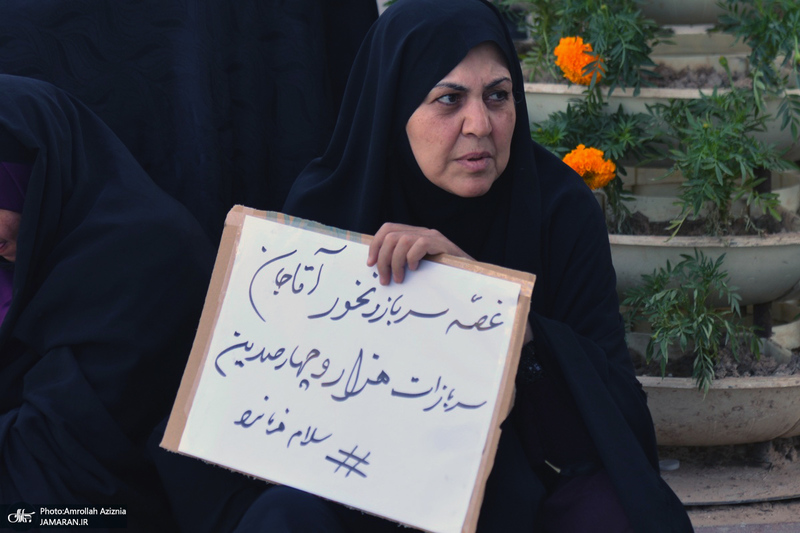 غصّه سرباز و نخور آقاجان
سربازات هزار و چهارصدین
#سلام فرمانده
Photo:Amrollah Aziznia
JAMARAN.IR